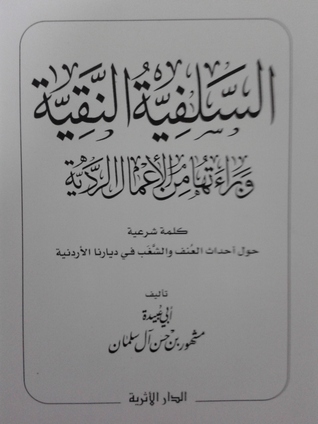 السَّلَفِيَّةُ النَّقِيَّة
وَبَرَاءَتُهَا مِنَ الأَعْمَالِ الرَّدِيَّة
كلمة شرعية
حول أحداث العُنف والشَّغَب في ديارنا الأردنية
تأليف
أبي عُبيدة
مشهور بن حسن آل سلمان
الدار الأثرية